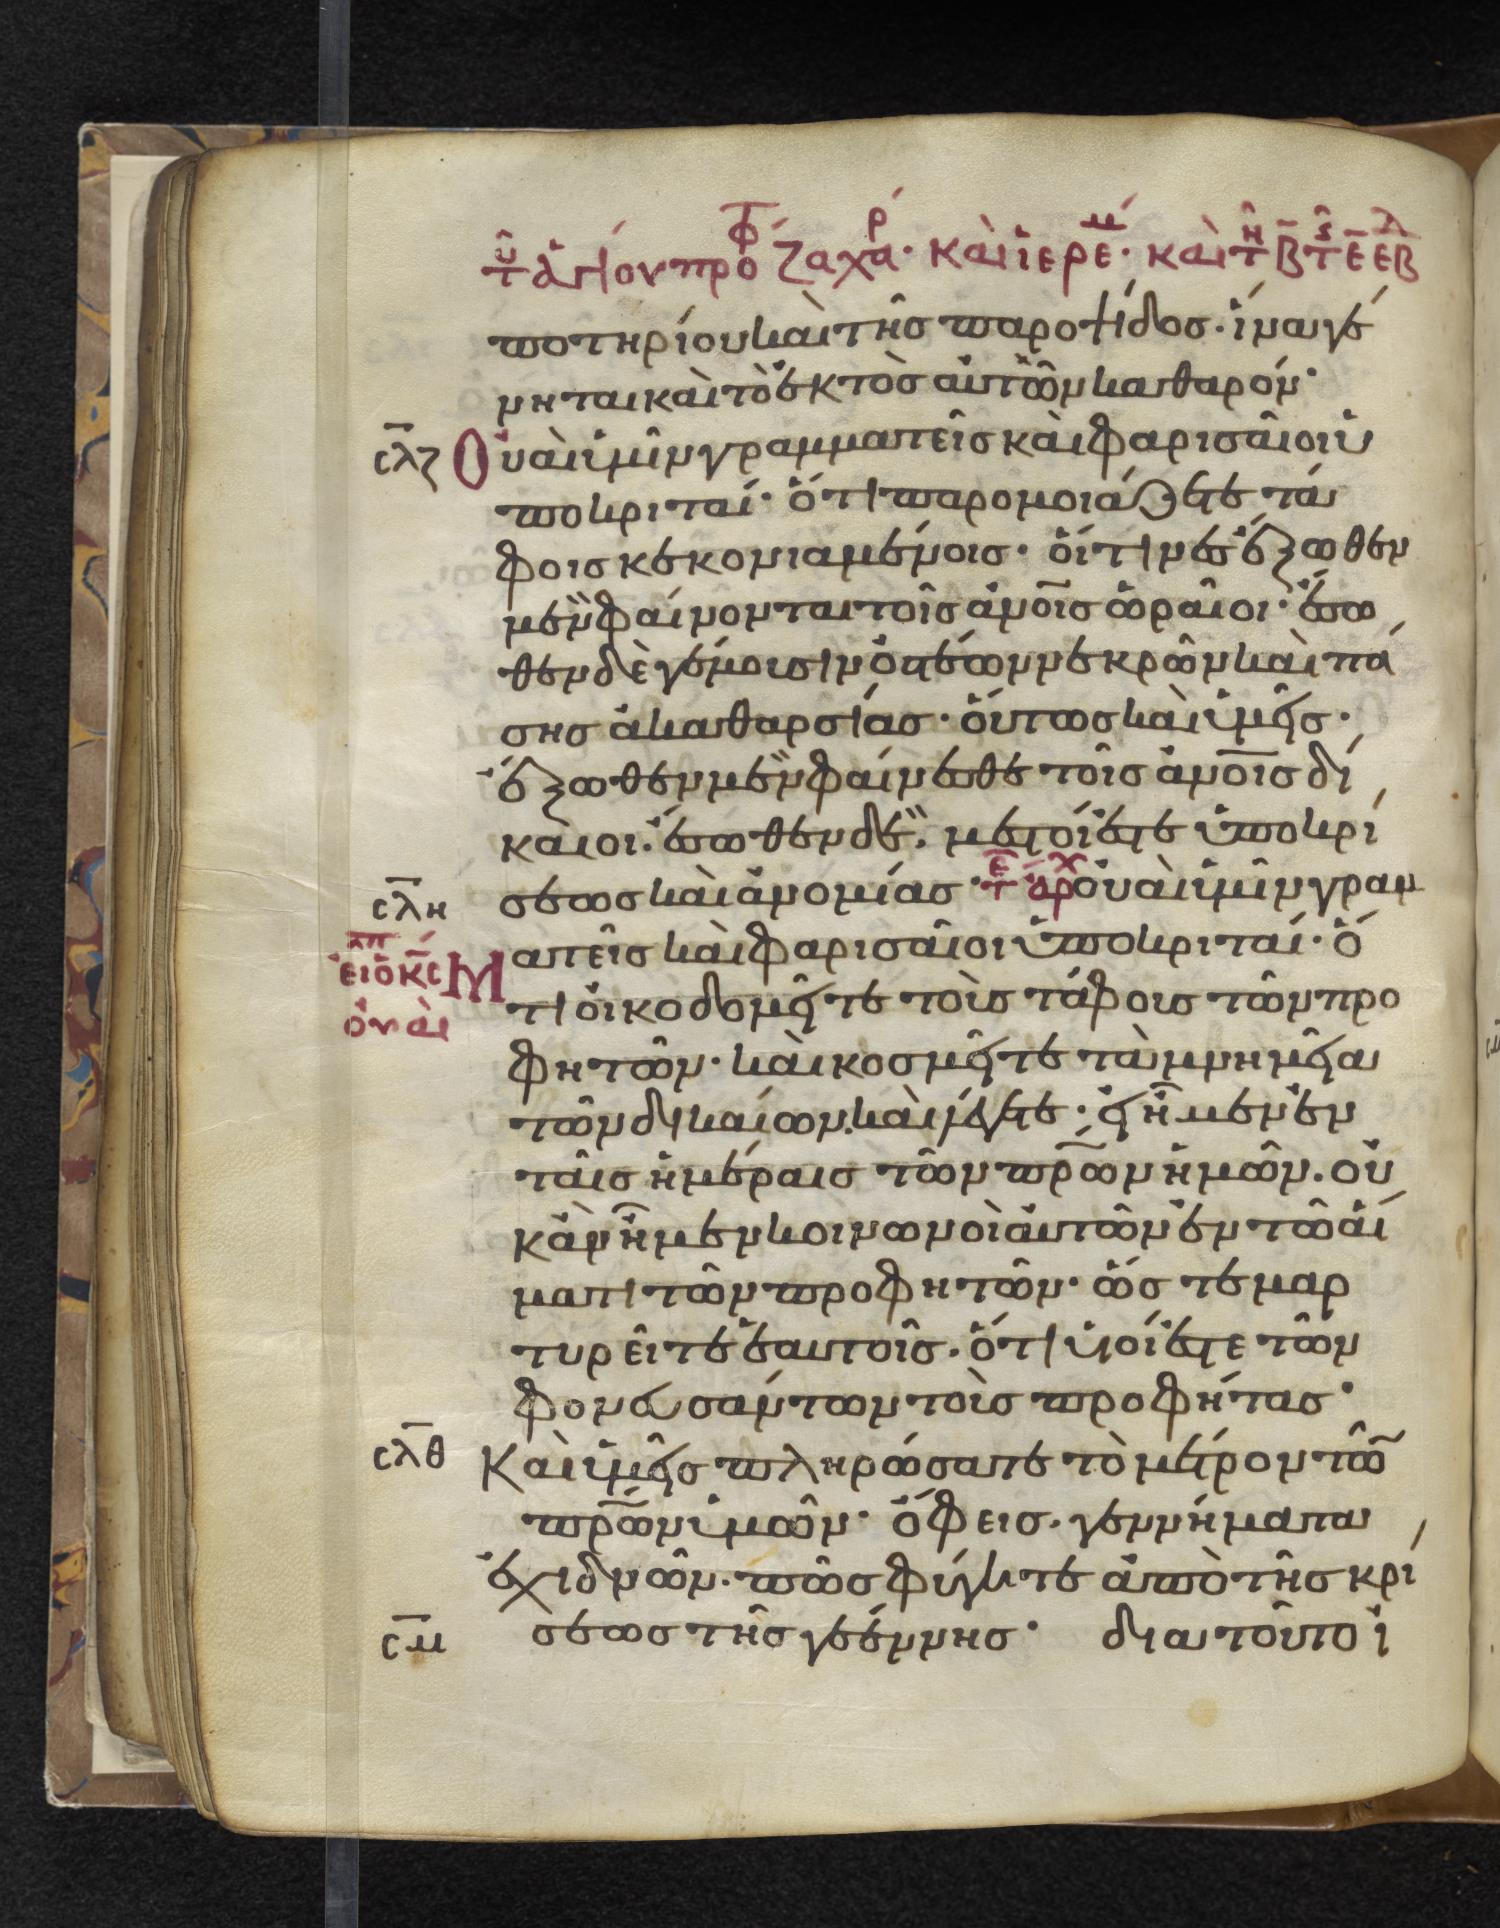 τ ἁγίου προφ ζαχαρ· καὶ ἱερεμ· καὶ τῆ β τ ς ε ἑβλ
ποτηρίου καὶ τῆς παροψίδος· ἵνα γέ
νηται καὶ τὸ ἐκτὸς αὐτῶν καθαρόν·
σλζ Οὐαὶ ὑμῖν γραμματεῖς καὶ φαρισαῖοι ὑ
ποκριταί· ὅτι παρομοιάζετε τά
φοις κεκονιαμένοις· οἵτινες ἔξωθεν
μὲν φαίνονται τοῖς ἀνοις ὡραῖοι· ἔσω
θεν δὲ γέμουσιν ὀστέων νεκρῶν καὶ πά
σης ἀκαθαρσίας· οὕτως καὶ ὑμεῖς·
ἔξωθεν μὲν φαίνεσθε τοῖς ἀνοις δί
καιοι· ἔσωθεν δὲ· μεστοί ἐστε ὑποκρί
σλη σεως καὶ ἀνομίας· τε ἀρχ οὐαὶ ὑμῖν γραμ
ματεῖς καὶ φαρισαῖοι ὑποκριταί· ὅ
εἶπ ὁ κς οὐαὶ
τι οἰκοδομεῖτε τοὺς τάφους τῶν προ
φητῶν· καὶ κοσμεῖτε τὰ μνημεῖα
τῶν δικαίων. καὶ λέγετε· εἰ ἦμεν ἐν
ταῖς ἡμέραις τῶν πρων ἡμῶν. οὐ
κἂν ἦμεν κοινωνοὶ αὐτῶν ἐν τῶ αἵ
ματι τῶν προφητῶν· ὥστε μαρ
τυρεῖτε ἑαυτοῖς. ὅτι υἱοί ἐστε τῶν
φονευσάντων τοὺς προφήτας·
σλθ Καὶ ὑμεῖς πληρώσατε τὸ μέτρον τῶ
πρων ὑμῶν· ὄφεις. γεννήματα
ἐχιδνῶν· πῶς φύγητε ἀπὸ τῆς κρί
σμ σεως τῆς γεέννης· διατοῦτο ἰ